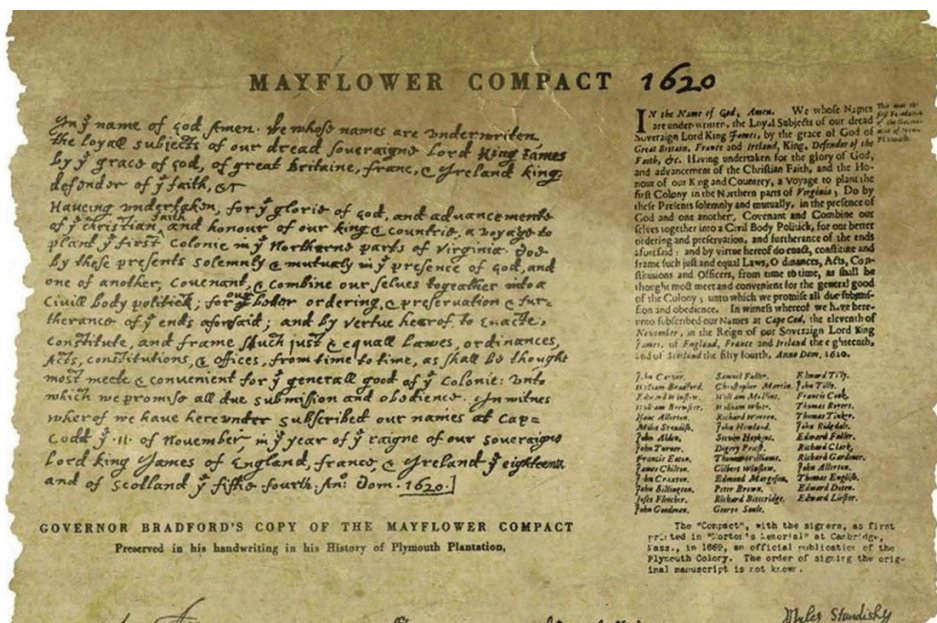 MAYFLOWER COMPACT 1620
In yͤ name of God Amen. We whose names are underwriten,
the loyall subjects of our dread soveraigne Lord King James
by yͤ grace of God, of great Britaine, franc, & Ireland king,
defender of yͤ faith, &c
Haveing undertaken, for yͤ glorie of God, and advancemente
of yͤ christian faith and honour of our king & countrie, a voyage to
plant yͤ first colonie in yͤ Northerne parts of Virginia. Doe
by these presents solemnly & mutualy in yͤ presence of God, and
one of another, covenant, & combine our selves togeather into a
Civill body politick; for our better ordering, & preservation & fur=
therance of yͤ ends aforsaid; and by vertue hearof to enacte,
constitute, and frame such just & equall Lawes, ordinances,
Acts, constitutions, & offices, from time to time, as shall be thought
most meete & convenient for yͤ generall good of yͤ Colonie: unto
which we promise all due submission and obedience. In witnes
wherof we have hereunder subscribed our names at Cap=
Codd yͤ .11. of November, in yͤ year of yͤ raigne of our soveraigne
Lord king James of England, france, & Ireland yͤ eighteenth
and of Scotland yͤ fiftie fourth. An: Dom. 1620.]
GOVERNOR BRADFORD'S COPY OF THE MAYFLOWER COMPACT
Preserved in his handwriting in his History of Plymouth Plantation,
IN the Name of God, Amen. We whose Names
are under-written, the Loyal Subjects of our dread
Soveraign Lord King James, by the grace of God of
Great Britain, France and Ireland, King, Defender of the
Faith, &c. Having undertaken for the glory of God,
and advancement of the Christian Faith, and the Ho-
nour of our King and Countrey, a Voyage to plant the
first Colony in the Northern parts of Virginia; Do by
these Presents solemnly and mutually, in the presence of
God and one another, Covenant and Combine our
selves together into a Civil Body Politick, for our better
ordering and preservation, and furtherance of the ends
aforesaid: and by virtue hereof do enact, constitute and
frame such just and equal Laws, Ordinances, Acts, Con-
stitutions and Officers, from time to time, as shall be
thought most meet and convenient for the general good
of the Colony; unto which we promise all due submis-
sion and obedience. In witness whereof we have here-
unto subscribed our Names at Cape Cod, the eleventh of
November, in the Reign of our Soveraign Lord King
James, of England, France and Ireland the eighteenth,
and of Scotland the fifty fourth, Anno Dom. 1620.
This was the
first Foundation
of the Govern-
ment of New-
Plimouth
John Carver. Samuel Fuller. Edward Tilly.
William Bradford. Christopher Martin. John Tilly.
Edward Winslow. William Mullins. Francis Cook.
William Brewster. William White. Thomas Rogers.
Isaac Allerton. Richard Warren. Thomas Tinker.
Miles Standish. John Howland. John Ridgdale.
John Alden. Steven Hopkins. Edward Fuller.
John Turner. Digery Priest. Richard Clark.
Francis Eaton. Thomas Williams. Richard Gardiner.
James Chilton. Gilbert Winslow. John Allerton.
John Craxton. Edmund Margeson. Thomas English.
John Billington. Peter Brown. Edward Doten.
Joses Fletcher. Richard Bitteridge. Edward Liester.
John Goodman. George Soule.
The "Compact", with the signers, as first
printed in "Morton's Memorial" at Cambridge,
Mass., in 1669, an official publication of the
Plymouth Colony. The order of signing the orig-
inal manuscript is not known.
Myles Standish